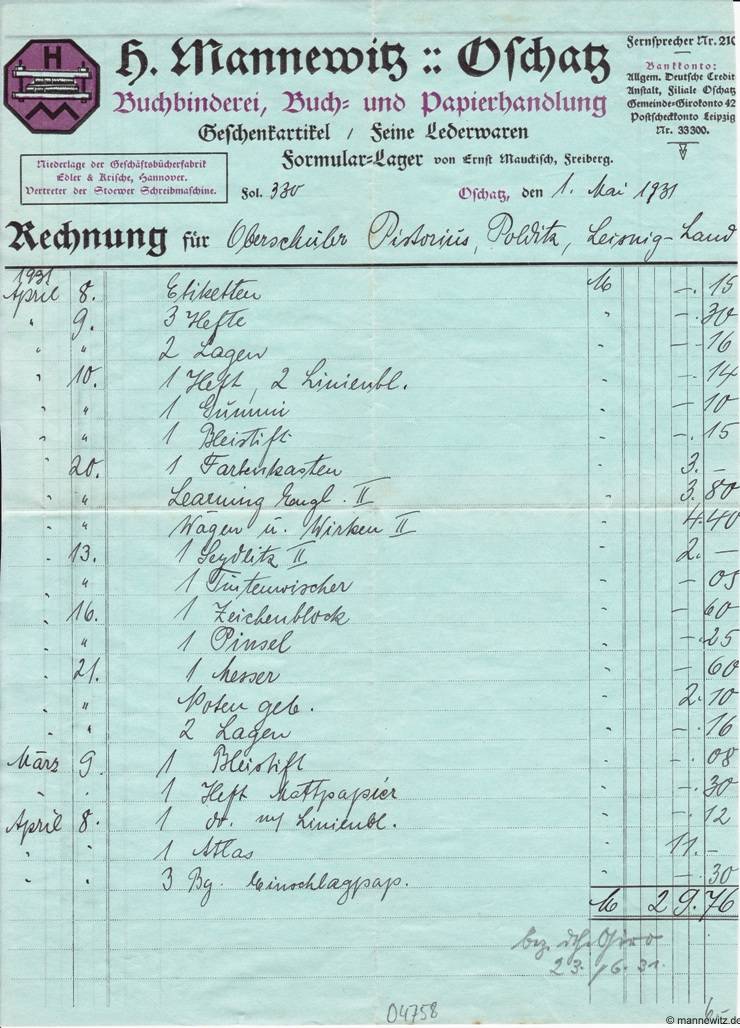 H
M
H. Mannewitz :: Oschatz
Buchbinderei, Buch= und Papierhandlung
Geschenkartikel / Feine Lederwaren
Formular=Lager von Ernst Mauckisch, Freiberg.
Fernsprecher Nr. 210
Bankkonto:
Allgem. Deutsche Credit
Anstalt, Filiale Oschatz
Gemeinde-Girokonto 42
Postscheckkonto Leipzig
Nr. 33300.
Niederlage der Geschäftsbücherfabrik
Edler & Krische, Hannover.
Vertreter der Stoewer Schreibmaschine.
Fol. 330
Oschatz, den 1. Mai 1931
Rechnung für Oberschüler Pistorius, Polditz, Leisnig-Land
1931
April 8. Etiketten M -. 15
" 9. 3 Hefte " -. 30
" " 2 Lagen " - 16
" 10. 1 Heft, 2 Linienbl. " -. 14
" " 1 Gummi " - 10
" " 1 Bleistift " -. 15
" 20. 1 Farbenkasten " 3. -
" " Learning Engl. II " 3. 80
" " Wägen u. Wirken II " 4. 40
" 13. 1 Seydlitz II " 2. -
" " 1 Tintenwischer " - 05
" 16. 1 Zeichenblock " - 60
" " 1 Pinsel " -. 25
" 21. 1 Messer " - 60
" " Noten geb. " 2. 10
" " 2 Lagen " -. 16
März 9. 1 Bleistift " -. 08
" " 1 Heft Mattpapier " -. 30
April 8. 1 do. m/ Linienbl. " -. 12
" " 1 Atlas " 11. -
" " 3 Bg. Einschlagpap. " -. 30
M 29.76
bez. dch. Giro
23./6. 31.
04758
© mannewitz.de